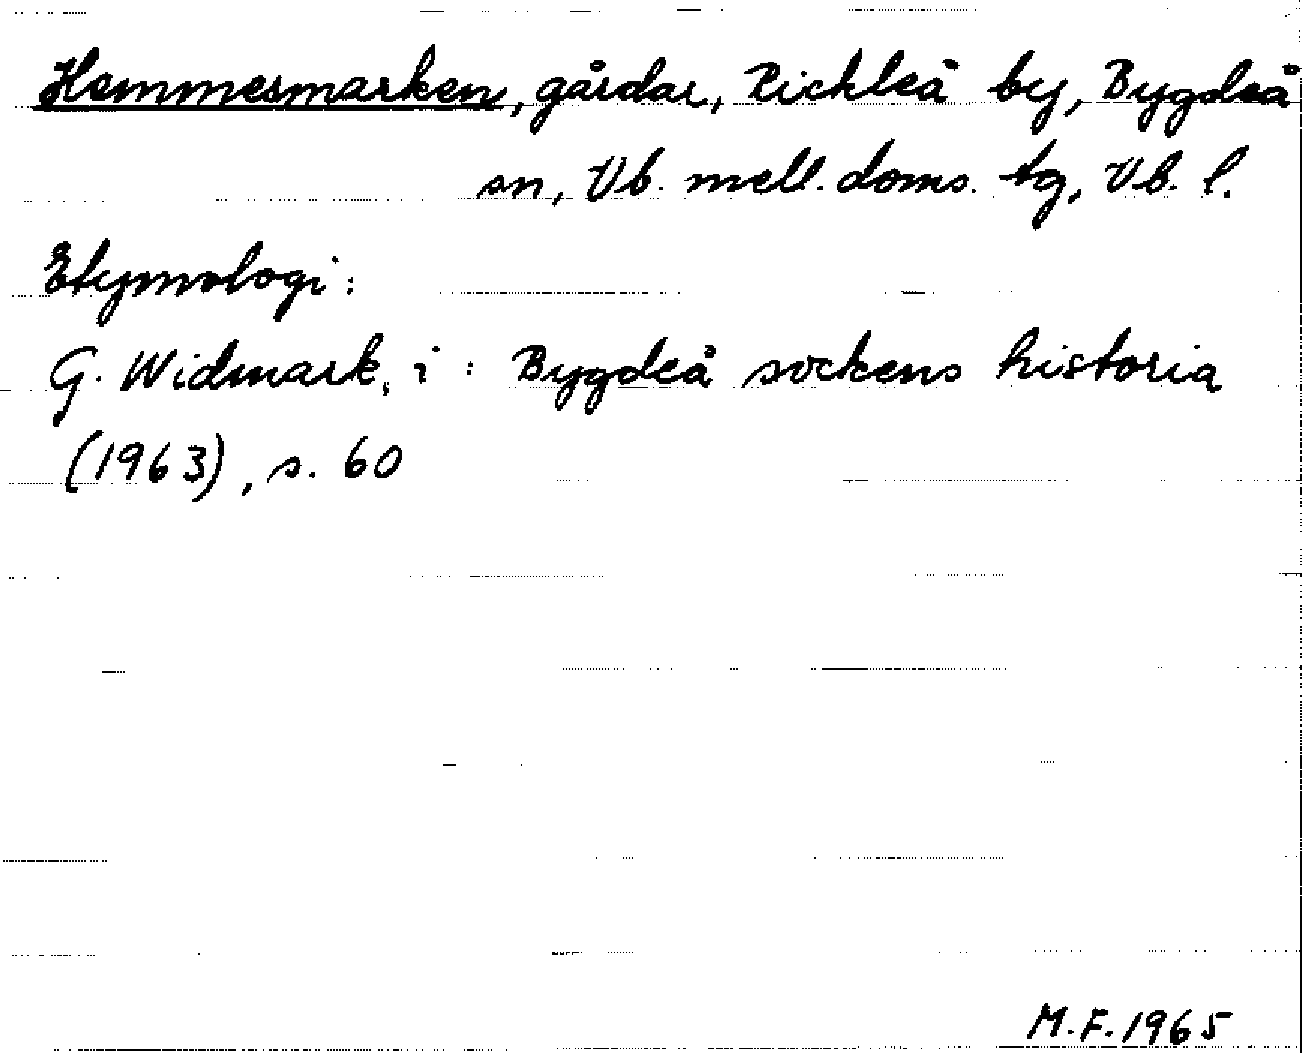 Hemmesmarken, gårdar, Rickleå by, Bygdeå
sn, Vb. mell. doms. tg, Vb. l.
Etymologi:
G. Widmark, i: Bygdeå sockens historia
(1963), s. 60
M.F. 1965